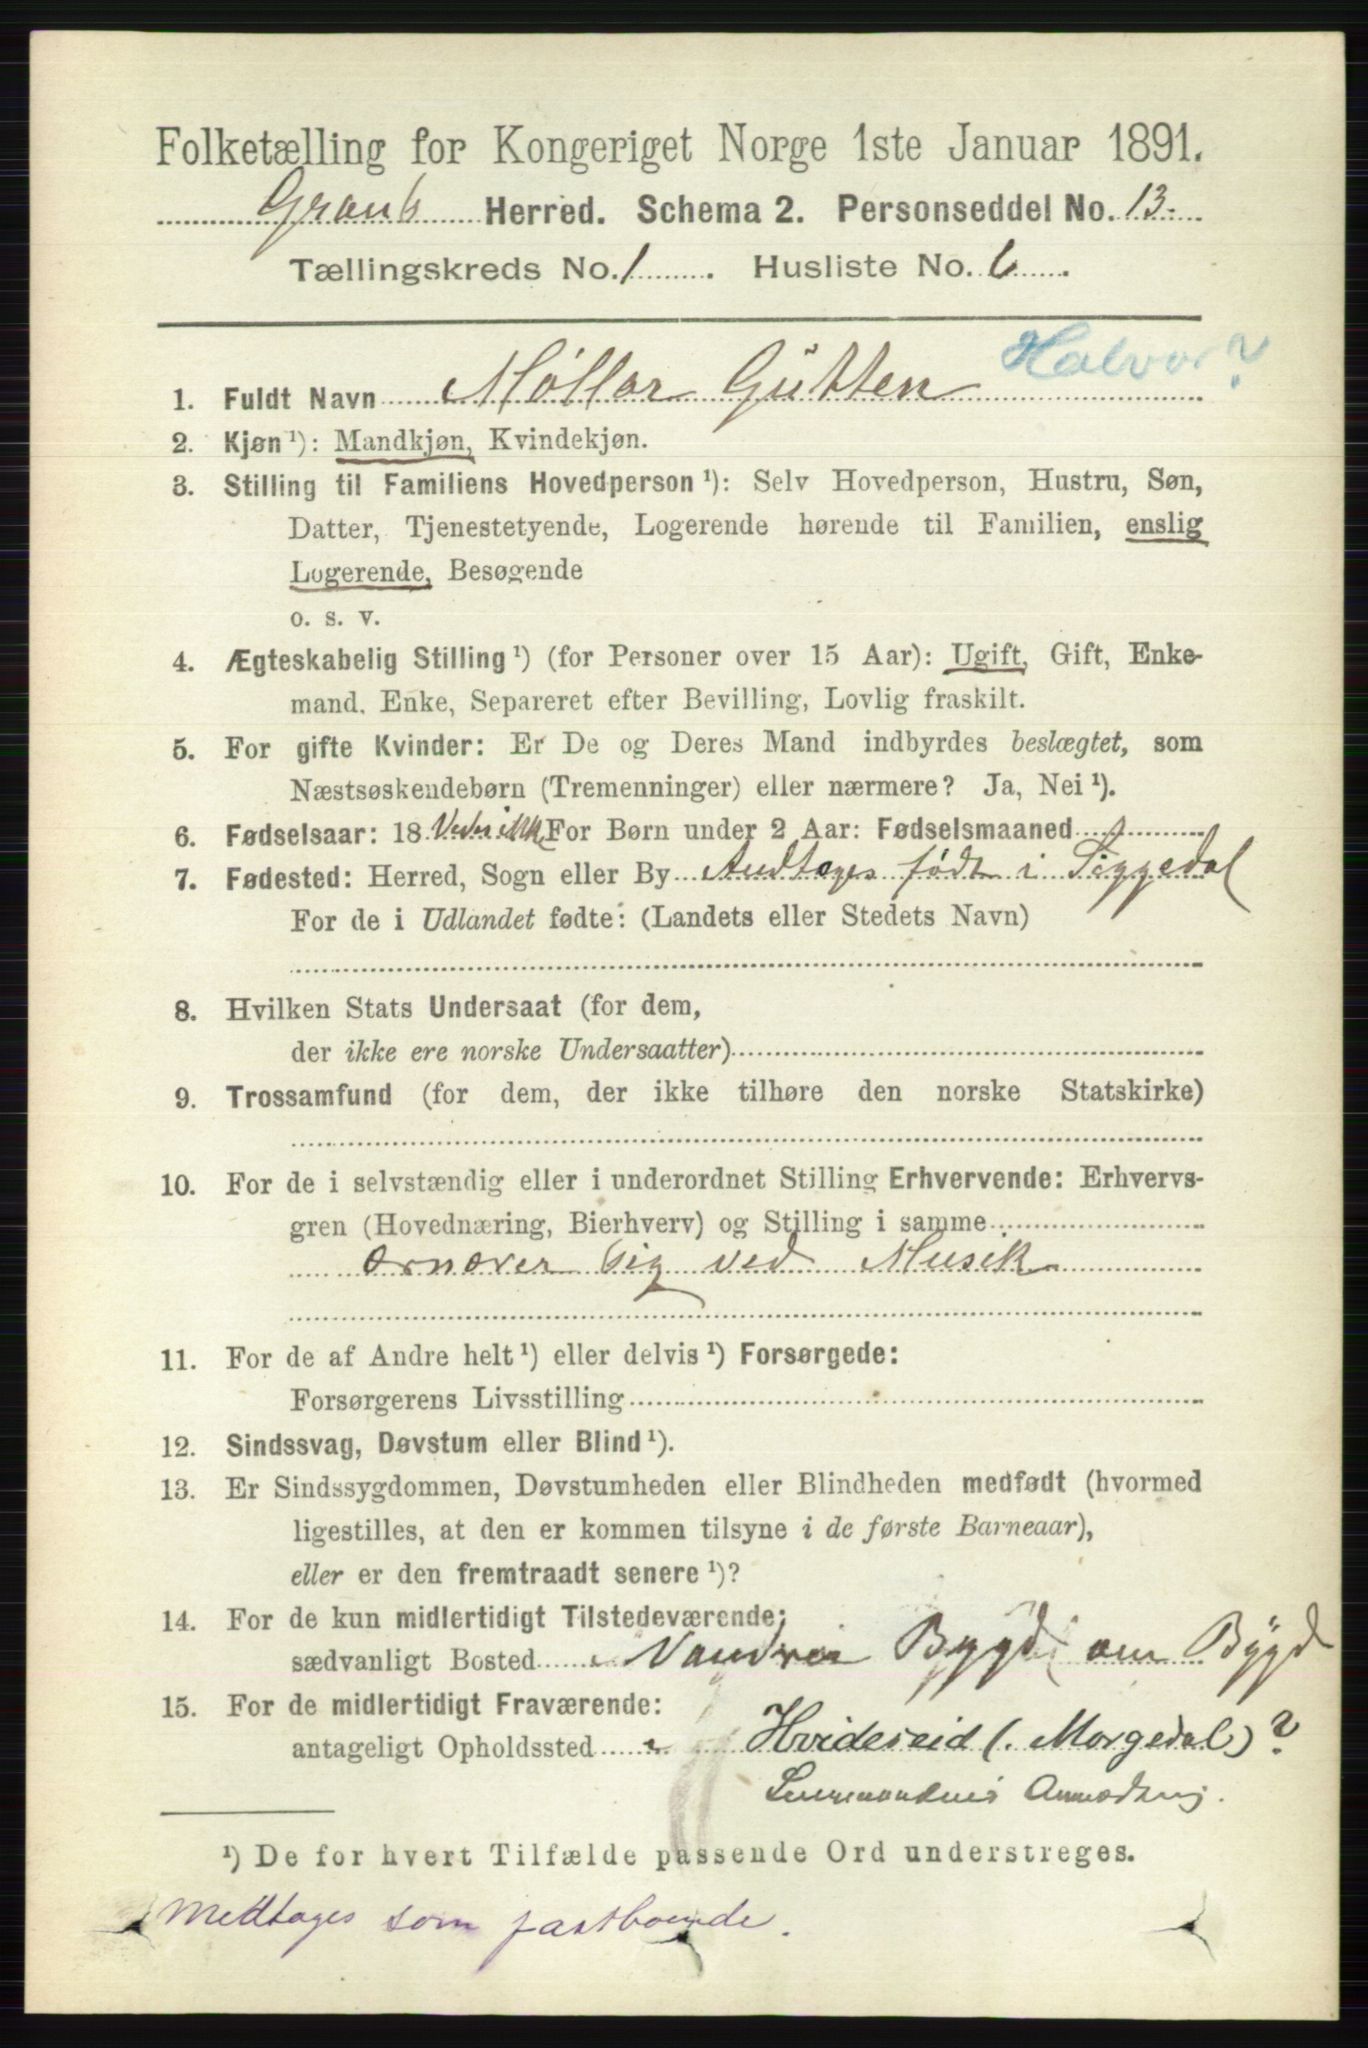 Folketælling for Kongeriget Norge 1ste Januar 1891.
Herred. Schema 2. Personseddel No. 13.
Tællingskreds No. 1. Husliste No. 6.
Halvor?
1. Fuldt Navn Møllar Gutten
2. Kjøn ¹): Mandkjøn, Kvindekjøn.
3. Stilling til Familiens Hovedperson ¹): Selv Hovedperson, Hustru, Søn,
Datter, Tjenestetyende, Logerende hørende til Familien, enslig
Logerende, Besøgende
o. s. v.
4. Ægteskabelig Stilling ¹) (for Personer over 15 Aar): Ugift, Gift, Enke-
mand, Enke, Separeret efter Bevilling, Lovlig fraskilt.
5. For gifte Kvinder: Er De og Deres Mand indbyrdes beslægtet, som
Næstsøskendebørn (Tremenninger) eller nærmere? Ja, Nei ¹).
6. Fødselsaar: 18 Ved ikke For Børn under 2 Aar: Fødselsmaaned
7. Fødested: Herred, Sogn eller By Andtages født i Siggedal
For de i Udlandet fødte: (Landets eller Stedets Navn)
8. Hvilken Stats Undersaat (for dem,
der ikke ere norske Undersaatter)
9. Trossamfund (for dem, der ikke tilhøre den norske Statskirke)
10. For de i selvstændig eller i underordnet Stilling Erhvervende: Erhvervs-
gren (Hovednæring, Bierhverv) og Stilling i samme
ærnærer sig ved Musik
11. For de af Andre helt ¹) eller delvis ¹) Forsørgede:
Forsørgerens Livsstilling
12. Sindssvag, Døvstum eller Blind ¹).
13. Er Sindssygdommen, Døvstumheden eller Blindheden medfødt (hvormed
ligestilles, at den er kommen tilsyne i de første Barneaar),
eller er den fremtraadt senere ¹)?
14. For de kun midlertidigt Tilstedeværende:
sædvanligt Bosted Vandrer Bygd om Bygd
15. For de midlertidigt Fraværende:
antageligt Opholdssted Hvideseid (. Morgedal)?
Lensmandens Anmærkning.
¹) De for hvert Tilfælde passende Ord understreges.
Medtages som fastboende.